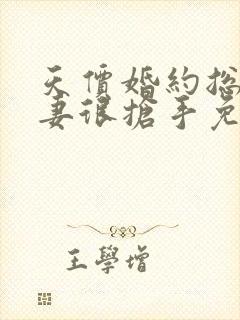 天價婚約総
妻很搶手免
王學增